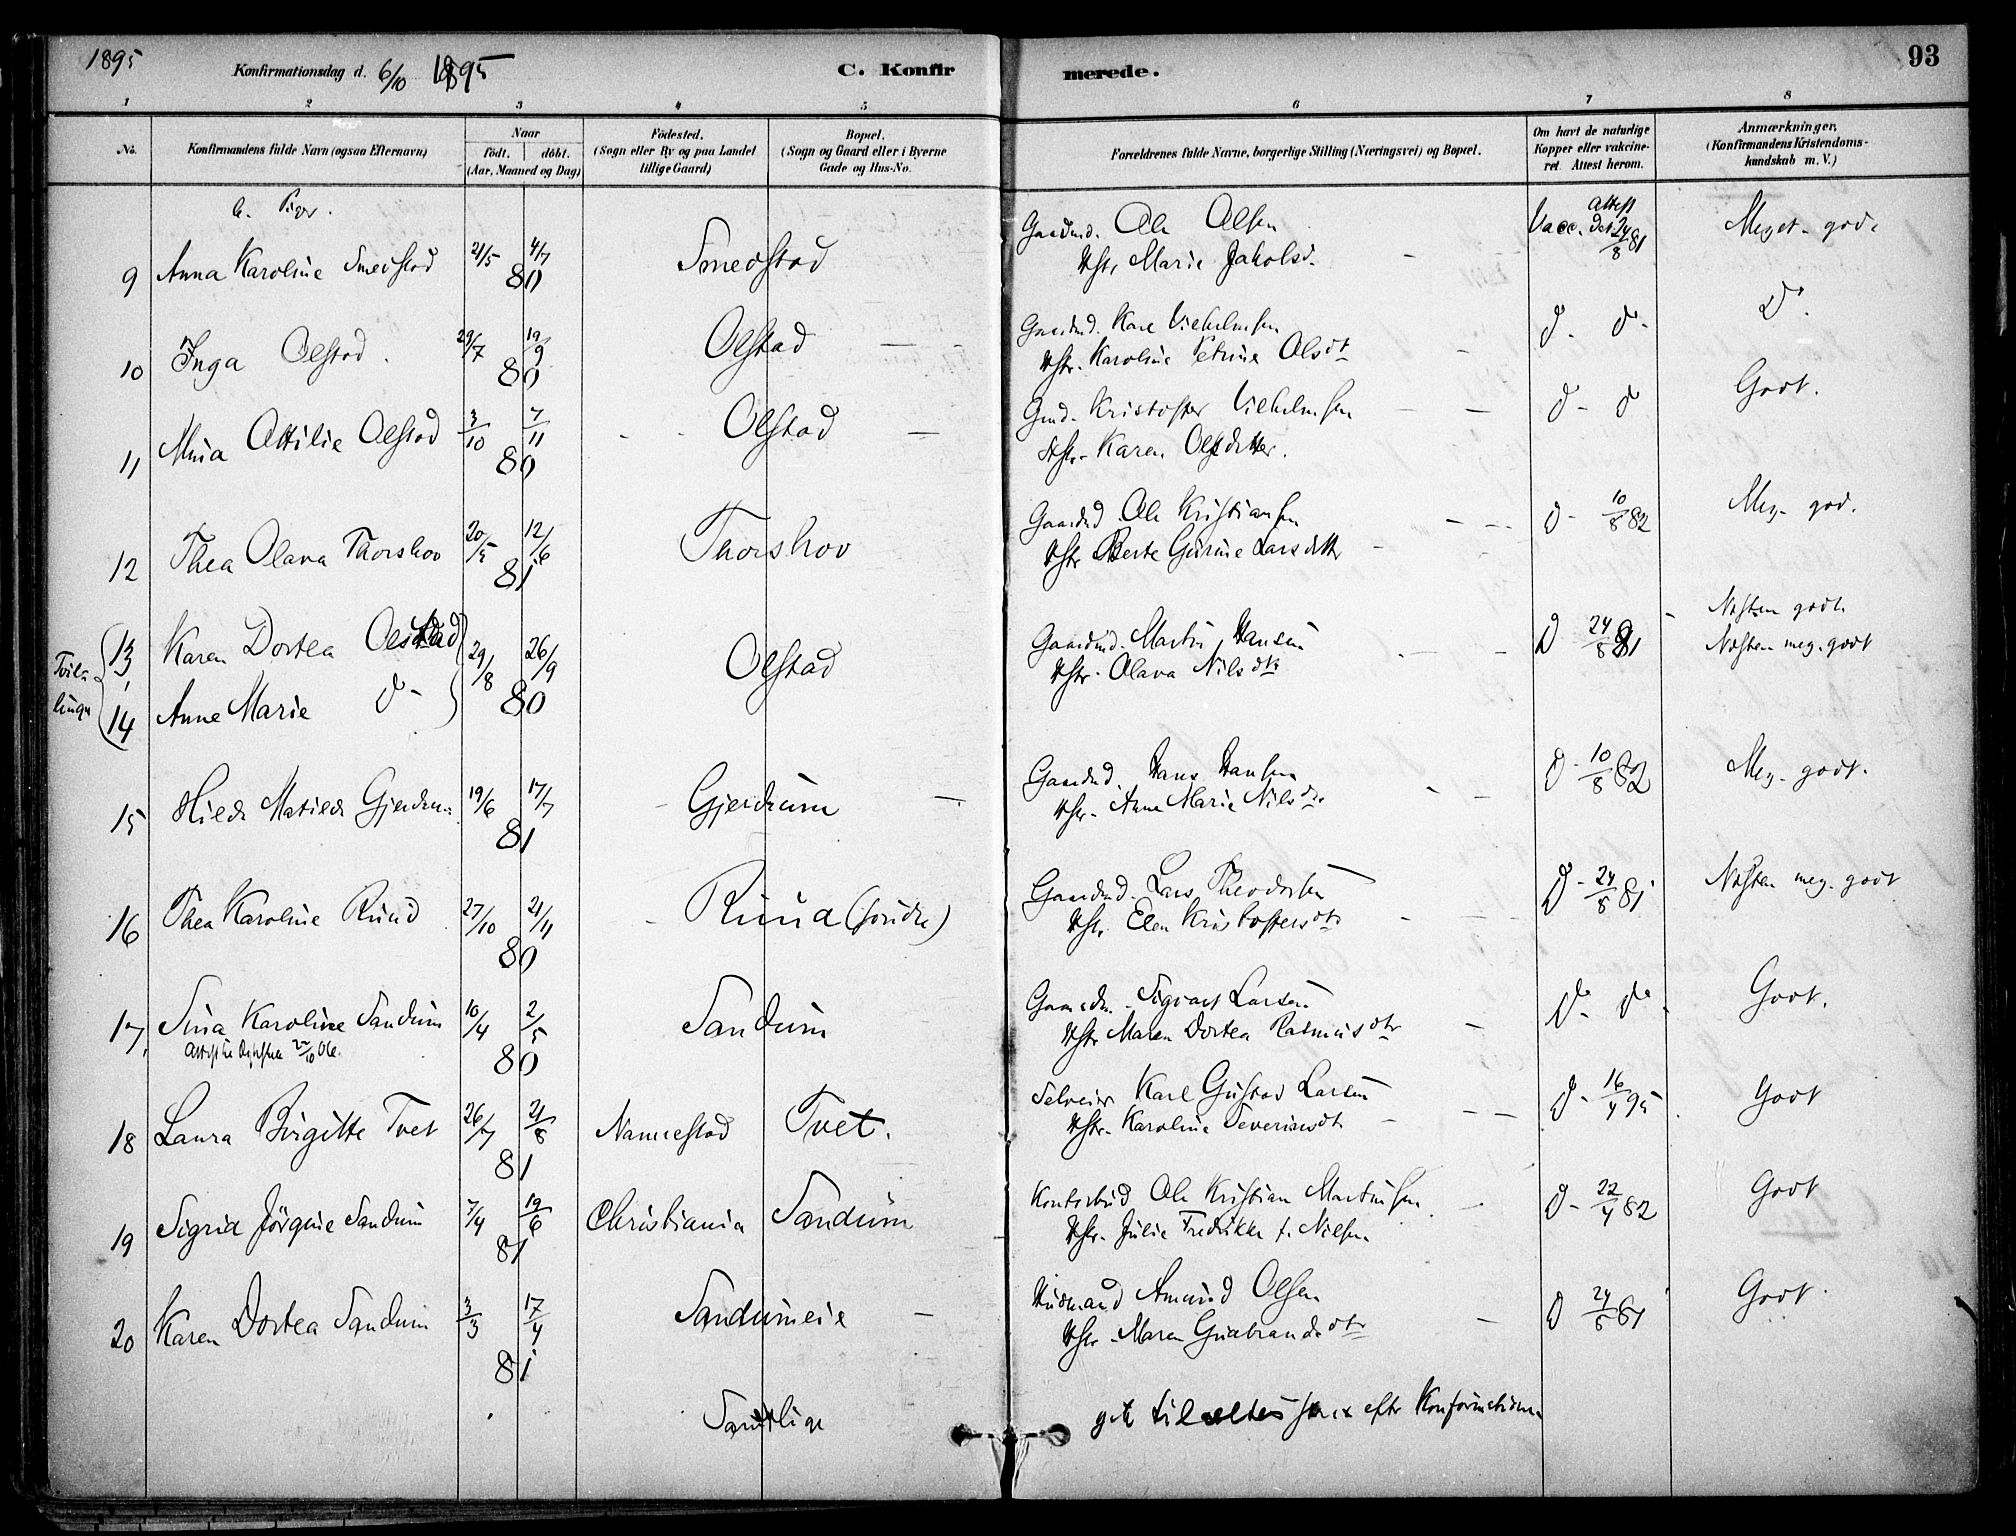 1895
Konfirmationsdag d. 6/10 1895
C. Konfirmerede.
93
1 2 3 4 5 6 7 8
No.
Konfirmandens fulde Navn (ogsaa Efternavn)
Naar
født. døbt.
(Aar, Maaned og Dag)
Fødested.
(Sogn eller By og paa Landet
tillige Gaard)
Bopæl.
(Sogn og Gaard eller i Byerne
Gade og Hus-No.
Forældrenes fulde Navne, borgerlige Stilling (Næringsvei) og Bopæl.
Om havt de naturlige
Kopper eller vakcine-
ret. Attest herom.
Anmærkninger.
(Konfirmandens Kristendoms-
kundskab m. V.)
b. Piger.
9 Anna Karoline Smedstad 21/5 4/7 80 Smedstad
Gaardmd. Ole Olsen
Hstr. Marie Jakobsd.
Vacc. Attest 24/8 81
Meget godt
10 Inga Olstad. 29/7 19/9 80 Olstad
Gaardmd. Kare Vilhelmsen
Hstr. Karoline Petrine Olsdt
d - d -
D.
11 Mina Ottilie Olstad 3/10 7/11 80 Olstad
Gmd. Kristoffer Vilhelmsen
Hstr. Karen Olsdatter.
d - d
Godt.
12 Thea Olava Thorshov 20/5 12/6 81 Thorshov
Gaardmd. Ole Kristiansen
Hstr Berte Gurine Larsdtter
d - 10/8 82
Meg. god.
Tvil-
linger
13, Karen Dortea Olstad 29/8 26/9 80 Olstad
14 Anne Marie d -
Gaardmd. Martin Hansen
Hstr. Olava Nilsdt
D 24/8 81
Næsten godt.
Næsten meg. godt
15 Hilda Matilde Gjerdrum 19/6 17/7 81 Gjerdrum
Gaardmd. Hans Hansen
Hstr. Anne Marie Nilsdtr.
d - 10/8 82
Meg. godt.
16 Thea Karoline Ruud 27/10 21/11 80 Ruud (søndre)
Gaardmd. Lars Theodorsen
Hstr. Elen Kristoffersdtr
D - 24/8 81
Næsten meg. godt
17, Sina Karoline Sandum 10/4 2/5 80 Sandum
06.
Gaardm. Sigvart Larsen
Hstr Maren Dortea Rasmusdtr
D - d -
Godt.
18 Laura Birgitte Tvet 26/7 21/8 81 Nannestad Tvet.
Selveier Karl Gustav Larsen
Hstr. Karoline Severinsdt.
D - 16/4 95.
Godt
19 Sigrid Jörgine Sandum 7/4 19/6 81 Christiania Sandum
Kontorbud Ole Kristian Martinsen
Hstr. Julie Fredrikke f. Nilsen
d - 22/4 82
Godt
20 Karen Dortea Sandum 3/3 17/4 81 Sandumeie
Husmand Amund Olsen
Hstr. Maren Gudbrandsdtr
D 24/8 81
Godt.
Samtlige gik til alters efter Konfirmationen